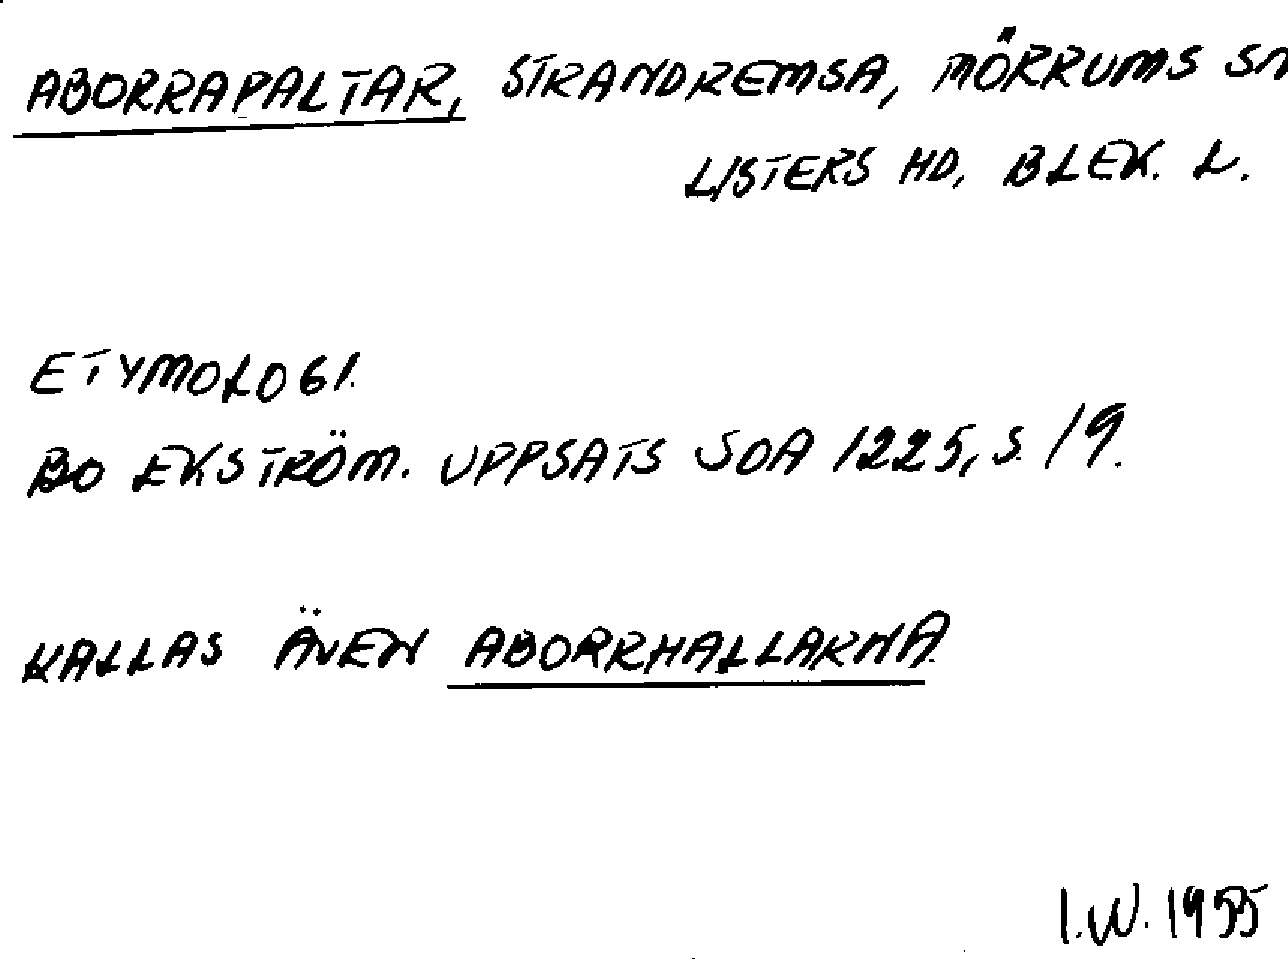 ABORRAPALTAR, STRANDREMSA, MÖRRUMS SN
LISTERS HD, BLEK. L.
ETYMOLOGI.
BO EKSTRÖM. UPPSATS SOA 1225, S. 19.
KALLAS ÄVEN ABORRHALLARNA
I.W. 1955